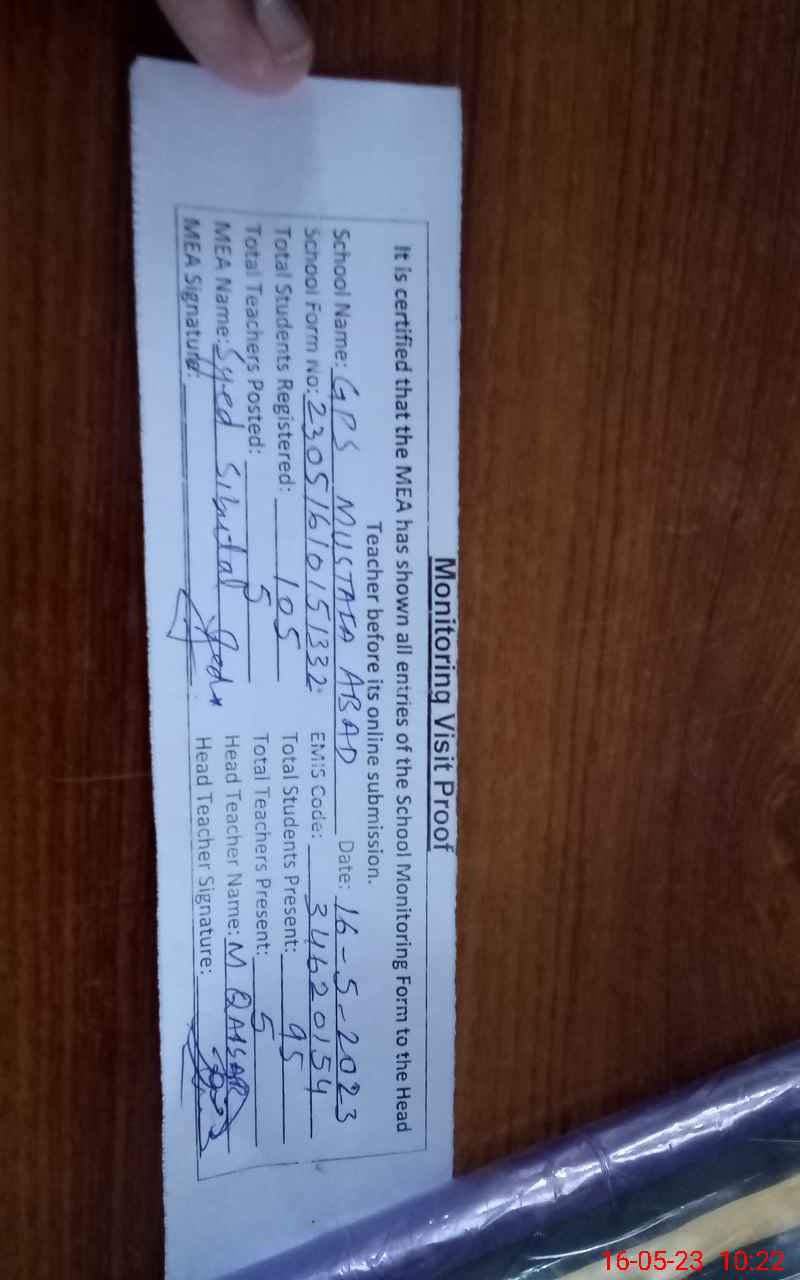 Monitoring Visit Proof
It is certified that the MEA has shown all entries of the School Monitoring Form to the Head
Teacher before its online submission.
School Name: GPS MUSTAFA ABAD Date: 16-5-2023
School Form No: 23051610151332 EMIS Code: 34620154
Total Students Registered: 105 Total Students Present: 95
Total Teachers Posted: 5 Total Teachers Present: 5
MEA Name: Syed Head Teacher Name: M QAISAR
MEA Signature: Head Teacher Signature:
16-05-23 10:22